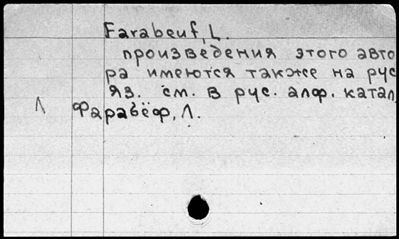 Farabeuf, L.
произведения этого авто
ра имеются также на рус
яз. см. в рус. алф. катал.
Л Фарабёф, Л.